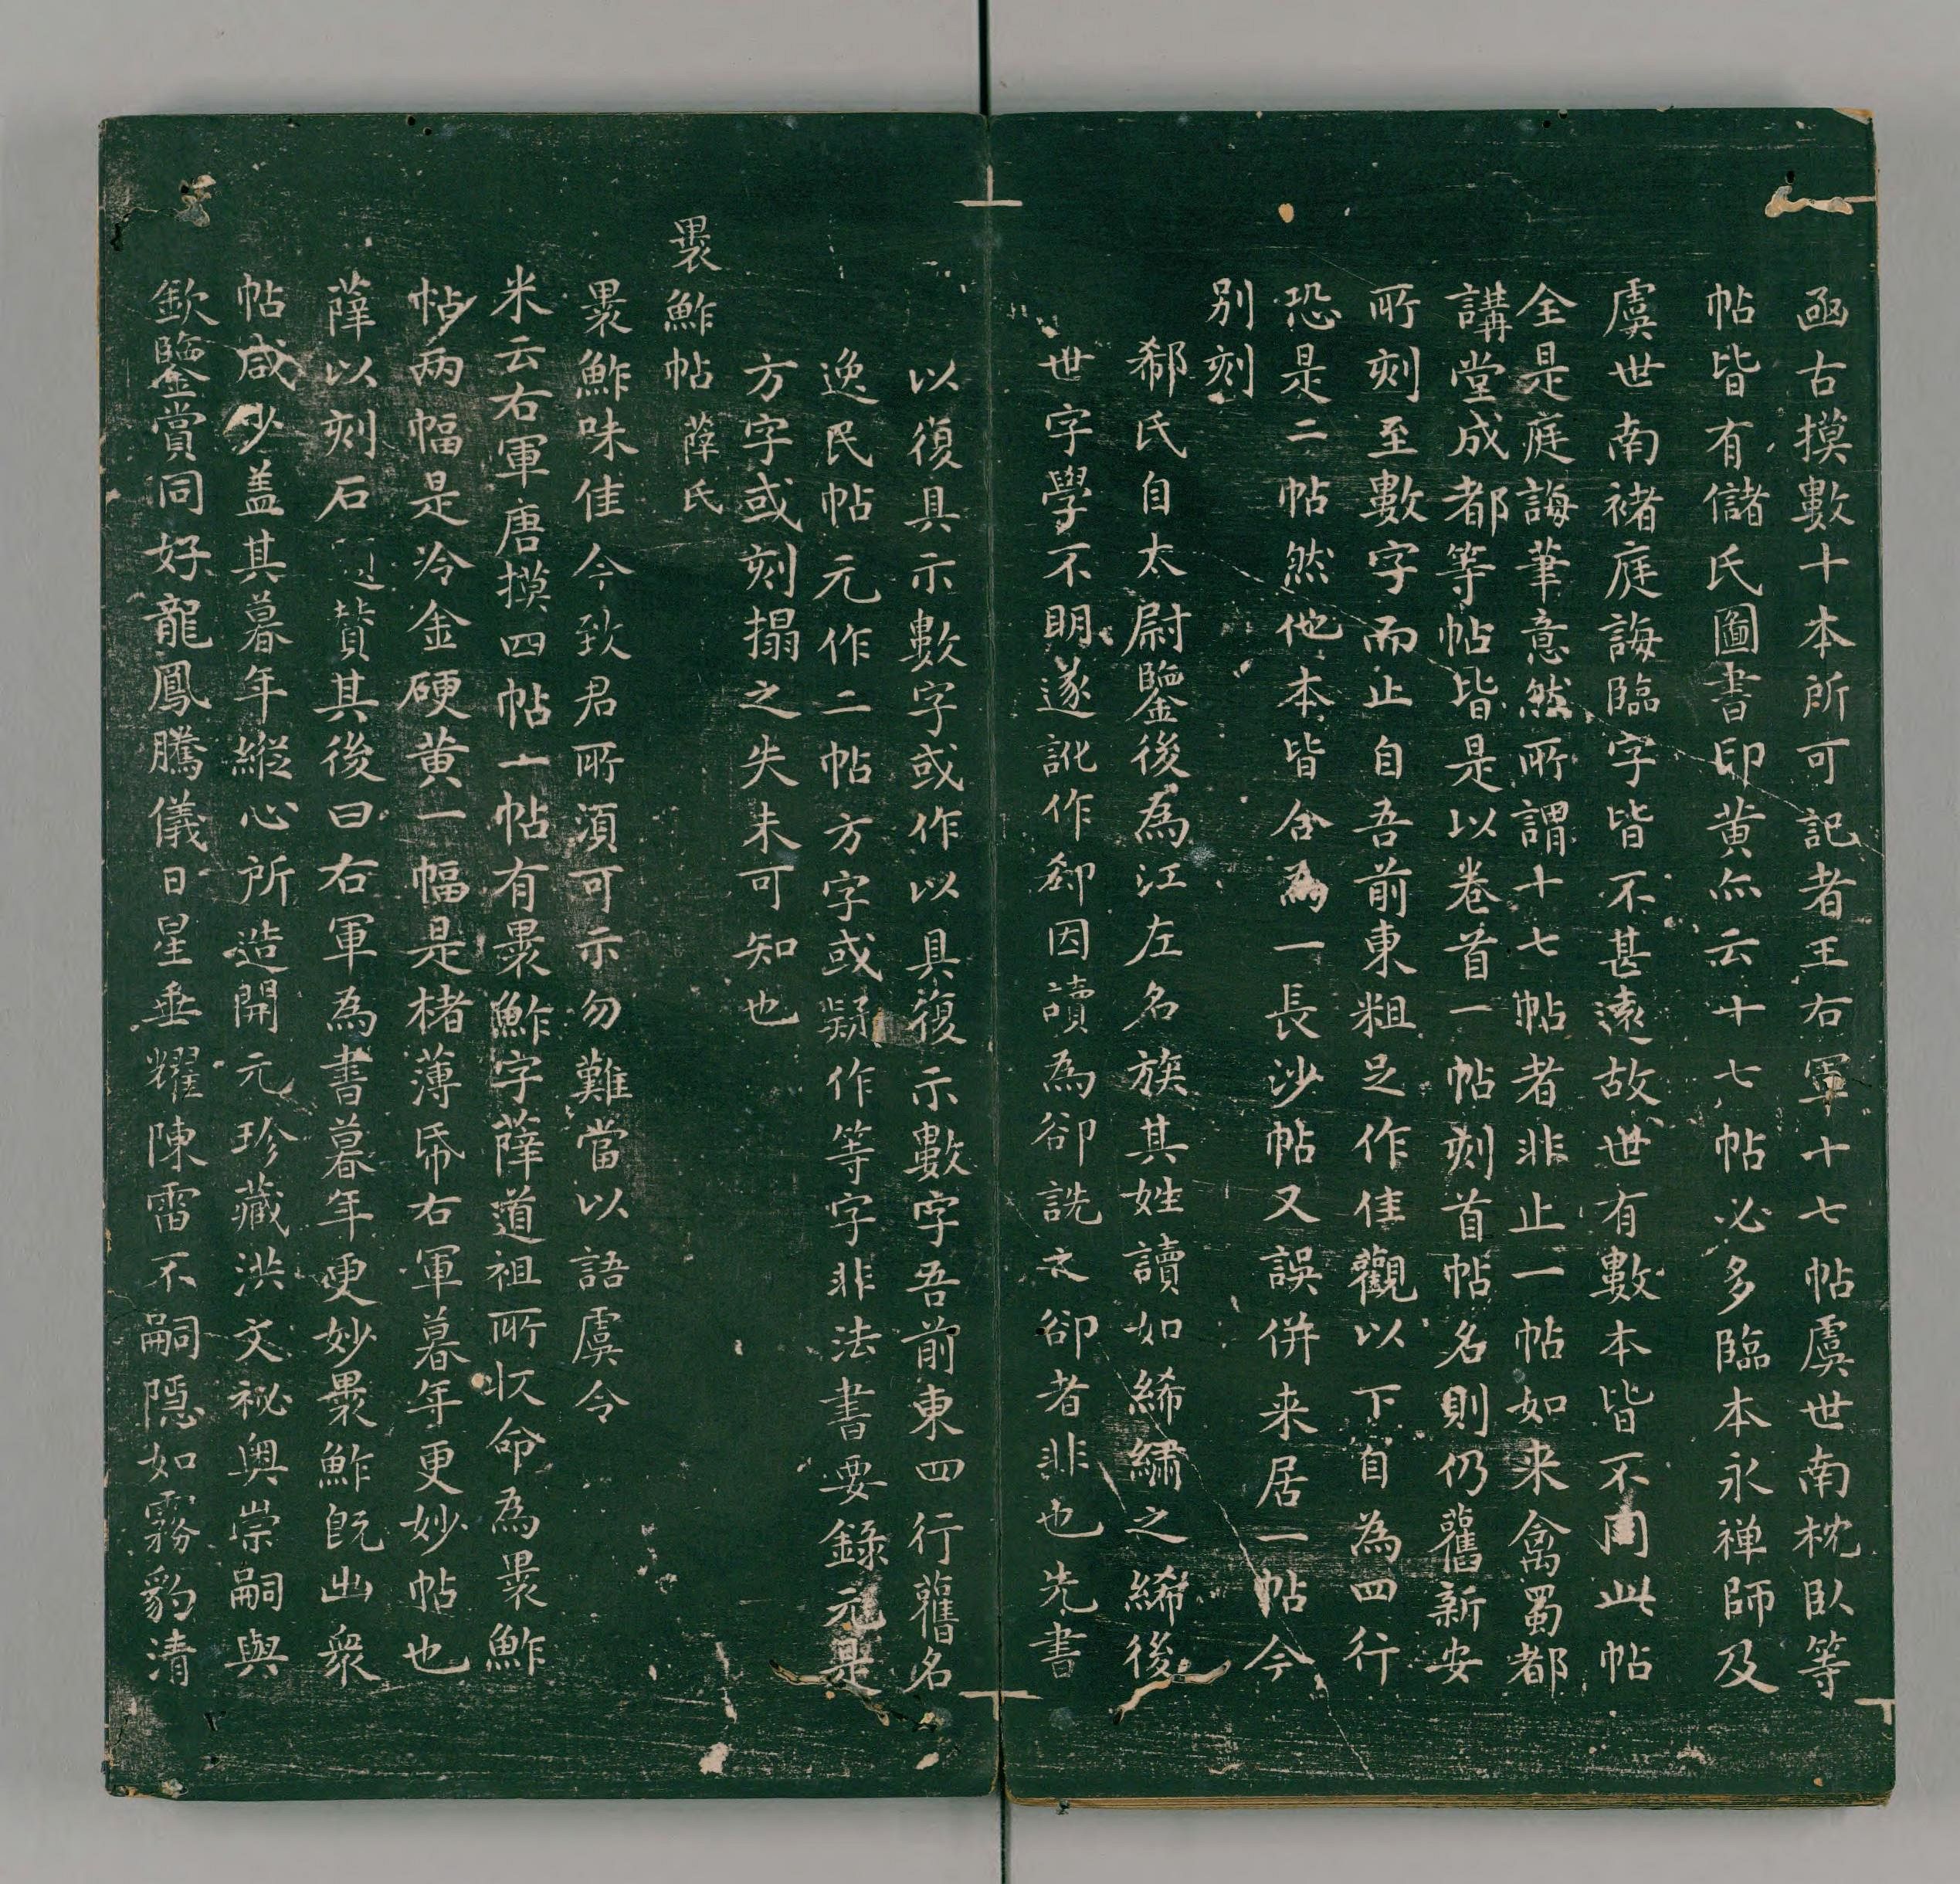 函古摸數十本所可記者王右軍十七帖虞世南枕臥等
帖皆有儲氏圖書印黄㸃云十七帖必多臨本永禅師及
虞世南褚庭誨臨字皆不甚遠故世有數本皆不同此帖
全是庭誨筆意然所謂十七帖者非止一帖如来禽蜀都
講堂成都等帖皆是以卷首一帖刻首帖名則仍舊新安
所刻至數字而止自吾前東粗足作佳觀以下自為四行
恐是二帖然他本皆合為一長沙帖又誤併来居一帖今
別刻
郗氏自太尉鑒後為江左名族其姓讀如絺繡之絺後
世字學不明遂訛作郄因讀為郤詵之郤者非也先書
以復具示數字或作以具復示數字吾前東四行舊名
逸民帖元作二帖方字或疑作等字非法書要録元是
方字或刻搨之失未可知也
褁鮓帖 薛氏
褁鮓味佳今致君所湏可示勿難當以語虞令
米云右軍唐摸四帖一帖有褁鮓字薛道祖所收命為褁鮓
帖两幅是冷金硬黄一幅是楮薄帋右軍暮年更妙帖也
薛以刻石賛其後曰右軍為書暮年更妙褁鮓既出衆
帖咸少盖其暮年縱心所造開元珍藏洪文祕奥崇嗣與
欽鑒賞同好龍鳳騰儀日星垂耀陳雷不嗣隱如霧豹清